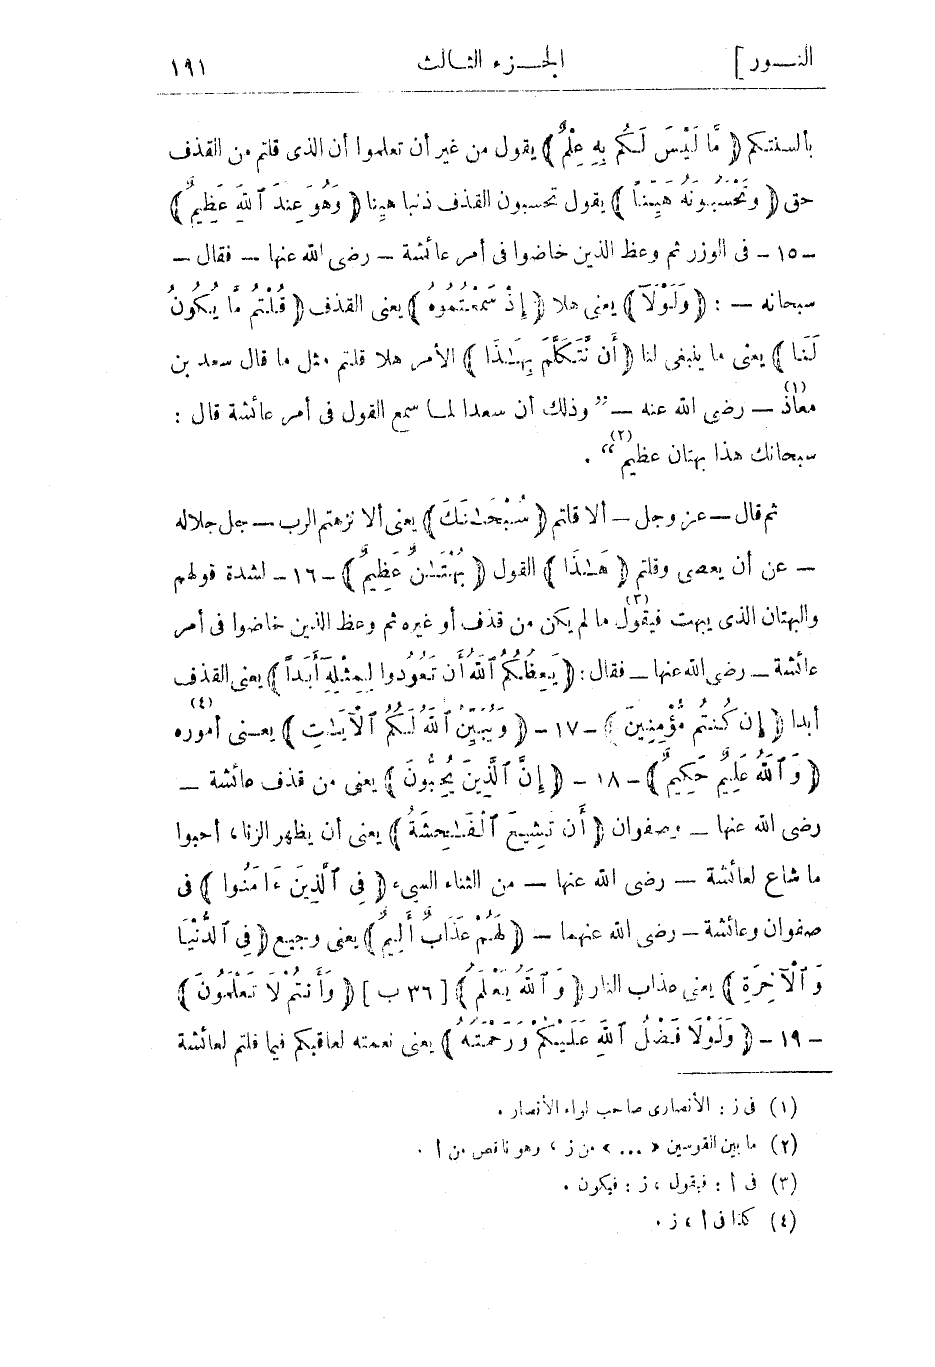 النــور] الجــزء الثـالث ١٩١
بألسنتكم ﴿ مَّا لَيْسَ لَكُم بِهِ عِلْمٌ ﴾ يقول من غير أن تعلموا أن الذى قلتم من القذف
حق ﴿ وَتَحْسَبُونَهُ هَيِّنًا ﴾ يقول تحسبون القذف ذنبا هينا ﴿ وَهُوَ عِندَ ٱللَّهِ عَظِيمٌ ﴾
– ١٥ – فى الوزر ثم وعظ الذين خاضوا فى أمر عائشة – رضى الله عنها – فقال –
سبحانه – : ﴿ وَلَوْلَآ ﴾ يعنى هلا ﴿ إِذْ سَمِعْتُمُوهُ ﴾ يعنى القذف ﴿ قُلْتُم مَّا يَكُونُ
لَنَا ﴾ يعنى ما ينبغى لنا ﴿ أَن نَّتَكَلَّمَ بِهَـٰذَا ﴾ الأمر هلا قلتم مثل ما قال سعد بن
معاذ (١) – رضى الله عنه – ” وذلك أن سعدا لمـا سمع القول فى أمر عائشة قال :
سبحانك هذا بهتان عظيم (٢) “ .
ثم قال – عز وجل – ألا قلتم ﴿ سُبْحَـٰنَكَ ﴾ يعنى ألا نزهتم الرب – جل جلاله
– عن أن يعصى وقلتم ﴿ هَـٰذَا ﴾ القول ﴿ بُهْتَـٰنٌ عَظِيمٌ ﴾ – ١٦ – لشدة قولهم
والبهتان الذى يبهت فيقول (٣) ما لم يكن من قذف أو غيره ثم وعظ الذين خاضوا فى أمر
عائشة – رضى الله عنها – فقال : ﴿ يَعِظُكُمُ ٱللَّهُ أَن تَعُودُوا لِمِثْلِهِٓ أَبَدًا ﴾ يعنى القذف
أبدا ﴿ إِن كُنتُم مُّؤْمِنِينَ ﴾ – ١٧ – ﴿ وَيُبَيِّنُ ٱللَّهُ لَكُمُ ٱلْآيَـٰتِ ﴾ يعـنى أموره (٤)
﴿ وَٱللَّهُ عَلِيمٌ حَكِيمٌ ﴾ – ١٨ – ﴿ إِنَّ ٱلَّذِينَ يُحِبُّونَ ﴾ يعنى من قذف عائشة –
رضى الله عنها – وصفوان ﴿ أَن تَشِيعَ ٱلْفَـٰحِشَةُ ﴾ يعنى أن يظهر الزنا، أحبوا
ما شاع لعائشة – رضى الله عنها – من الثناء السيء ﴿ فِى ٱلَّذِينَ ءَامَنُوا ﴾ فى
صفوان وعائشة – رضى الله عنهما – ﴿ لَهُمْ عَذَابٌ أَلِيمٌ ﴾ يعنى وجيع ﴿ فِى ٱلدُّنْيَا
وَٱلْآخِرَةِ ﴾ يعنى عذاب النار ﴿ وَٱللَّهُ يَعْلَمُ ﴾ [ ٣٦ ب ] ﴿ وَأَنتُمْ لَا تَعْلَمُونَ ﴾
– ١٩ – ﴿ وَلَوْلَا فَضْلُ ٱللَّهِ عَلَيْكُمْ وَرَحْمَتُهُ ﴾ يعنى نعمته لعاقبكم فيما قلتم لعائشة
(١) فى ز : الأنصارى صاحب لواء الأنصار .
(٢) ما بين القوسين « ... » من ز ، وهو ناقص من أ .
(٣) فى أ : فيقول ، ز : فيكون .
(٤) كذا فى أ ، ز .